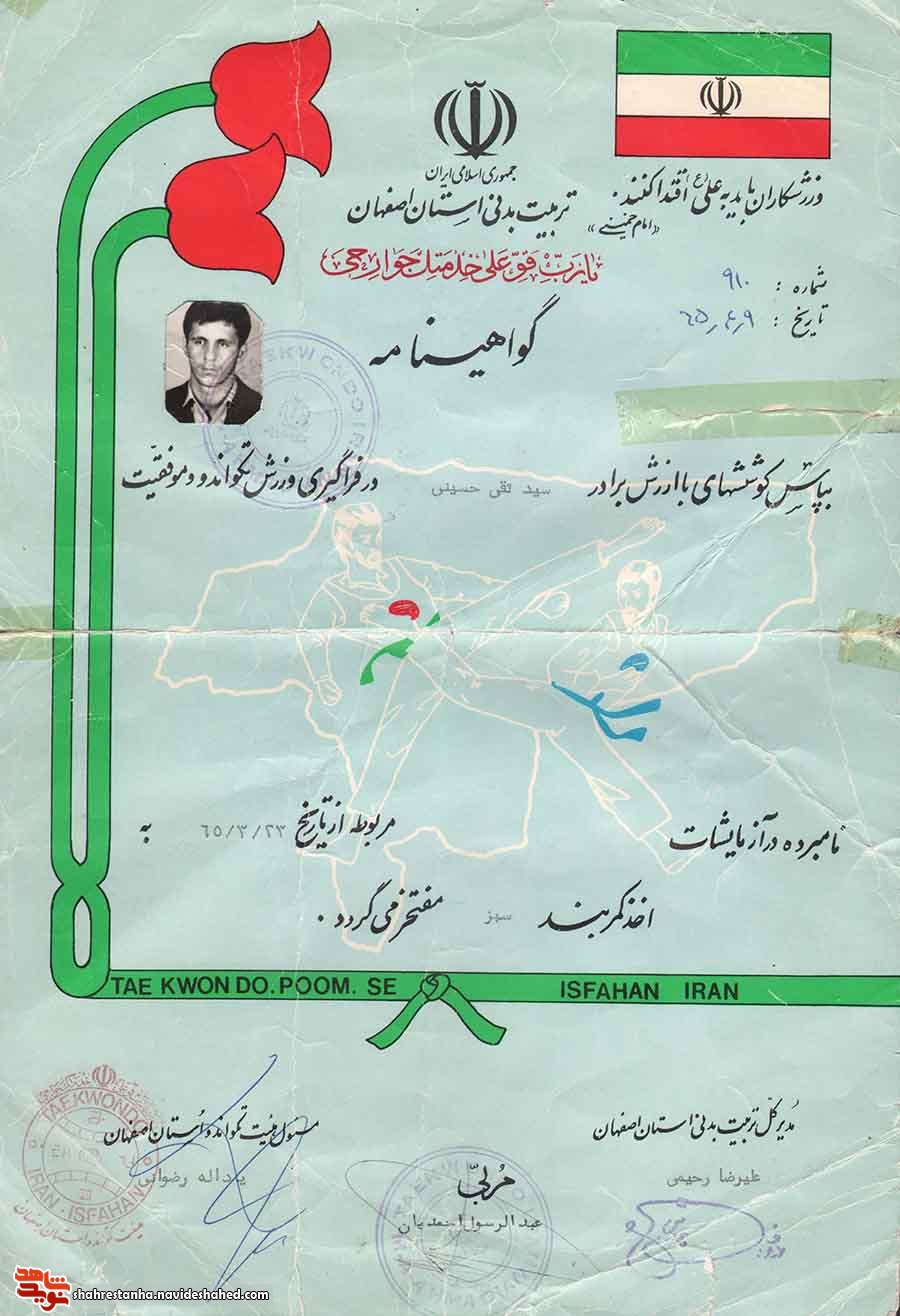 جمهوری اسلامی ایران
تربیت بدنی استان اصفهان
ورزشکاران باید به علی (ع) اقتدا کنند.
«امام خمینی»
یا رب قو علی خدمتک جوارحی
شماره : ۹۱۰
تاریخ : ۶۵٫۴٫۹
گواهینامه
بپاس کوششهای با ارزش برادر سید تقی حسینی در فراگیری ورزش تکواندو و موفقیت
نامبرده در آزمایشات مربوطه از تاریخ ۶۵/۳/۲۳ به
اخذ کمربند سبز مفتخر می گردد.
TAE KWON DO. POOM. SE ISFAHAN IRAN
مدیر کل تربیت بدنی استان اصفهان
علیرضا رحیمی
مربی
عبدالرسول اسعدیان
مسئول هیئت تکواندو استان اصفهان
یداله رضوانی
TAEKWONDO
IRAN - ISFAHAN
هیئت تکواندو استان اصفهان
نوید شاهد
shahrestanha.navideshahed.com